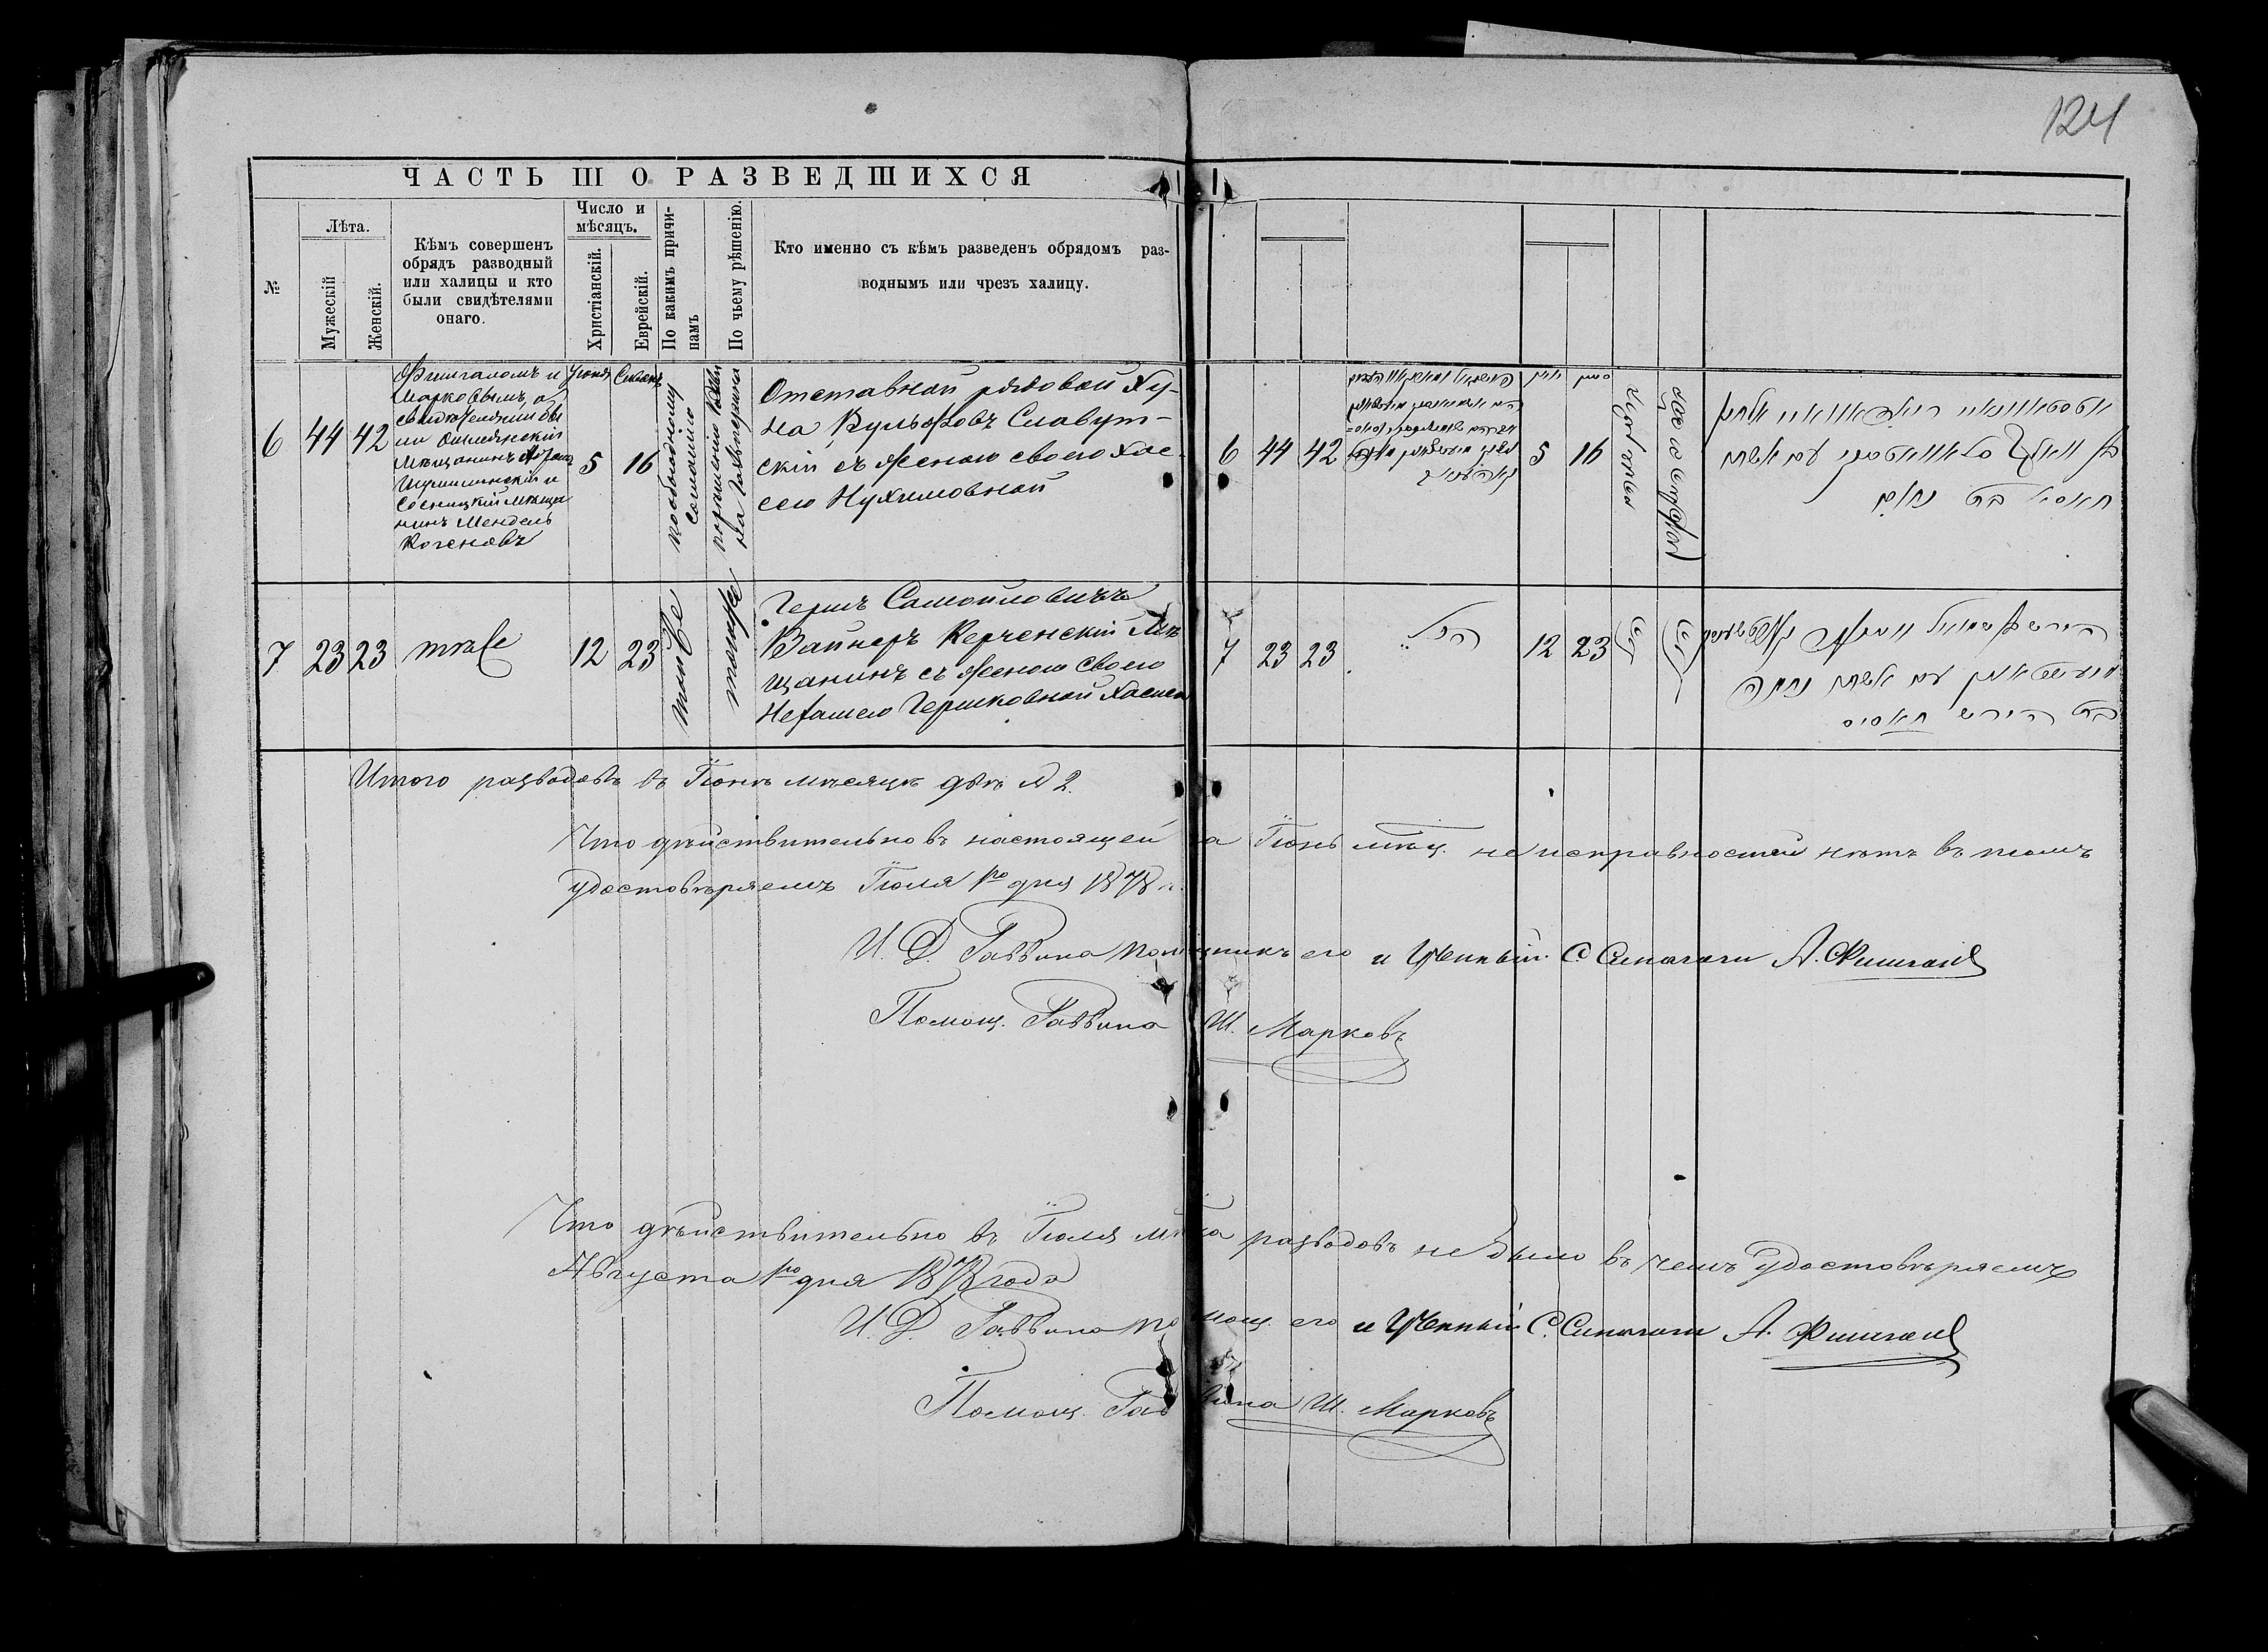 124
ЧАСТЬ III О РАЗВЕДШИХСЯ
№
Лѣта.
Мужескій
Женскій.
Кѣмъ совершенъ
обрядъ разводный
или халицы и кто
были свидѣтелями
онаго.
Число и
мѣсяцъ.
Христіанскій.
Еврейскій.
По какимъ причи-
намъ
По чьему рѣшенію.
Кто именно съ кѣмъ разведенъ обрядомъ раз-
воднымъ или чрезъ халицу.
6
44
42
Фишгаломъ и
Марковымъ, а
свидѣтелями бы
ли Ошмянскій
мѣщанинъ Абрамъ
и
Сосницкій мѣща
нинъ Мендель
Когеновъ
Іюня
5
Сивана
16
по обоюдному
согласію
по рѣшенію
Отставной рядовой Ху-
на Вульфовъ Славут-
скій съ женою своею Хас-
сею Нухимовной
6 44 42
יוני
5
סיון
16
בן וואלף סלאוואטסקי עם אשתו
חאסיי בת נחום
7
23
23
тоже
12
23
тоже
тоже
Гершъ Самойловичъ
Вайнеръ Керченскій мѣ
щанинъ съ женою своею
Нехамею Гершковной Хасис
7 23 23
הנ״ל
12 23
הירש
עם אשתו נחמה
בת הירש חאסיס
Итого разводовъ въ Іюнѣ мѣсяцѣ два № 2.
Что дѣйствительно въ настоящей за Іюнь мѣц. неисправностей нѣтъ въ томъ
удостовѣряемъ Іюля 1го дня 1878 г.
И. Д. Раввина помощникъ его и Ученный С. Синагоги А. Фишгалъ
Помощ. Раввина Ш. Марковъ
Что дѣйствительно въ Іюля мѣца разводовъ не было въ чемъ удостовѣряемъ
Августа 1го дня 1878 года
И. Д. Раввина помощ. его и Ученный С. Синагоги А. Фишгалъ
Помощ. Раввина Ш. Марковъ